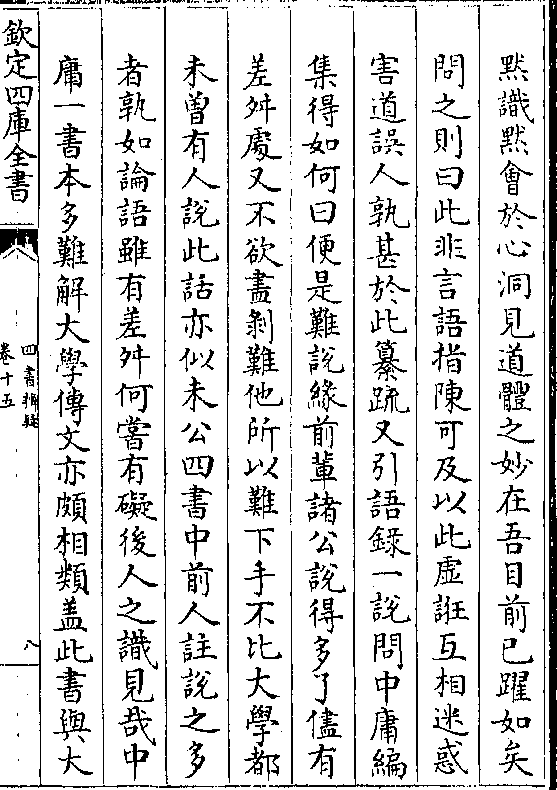 黙識黙會於心洞見道體之妙在吾目前已躍如矣
問之則曰此非言語指陳可及以此虛誑互相迷惑
害道誤人孰甚於此纂疏又引語錄一說問中庸編
集得如何曰便是難說緣前輩諸公說得多了儘有
差舛處又不欲盡剝難他所以難下手不比大學都
未曽有人說此話亦似未公四書中前人註說之多
者孰如論語雖有差舛何嘗有礙後人之識見哉中
庸一書本多難解大學傳文亦頗相類盖此書與大
欽定四庫全書
四書辨疑
卷十五
八